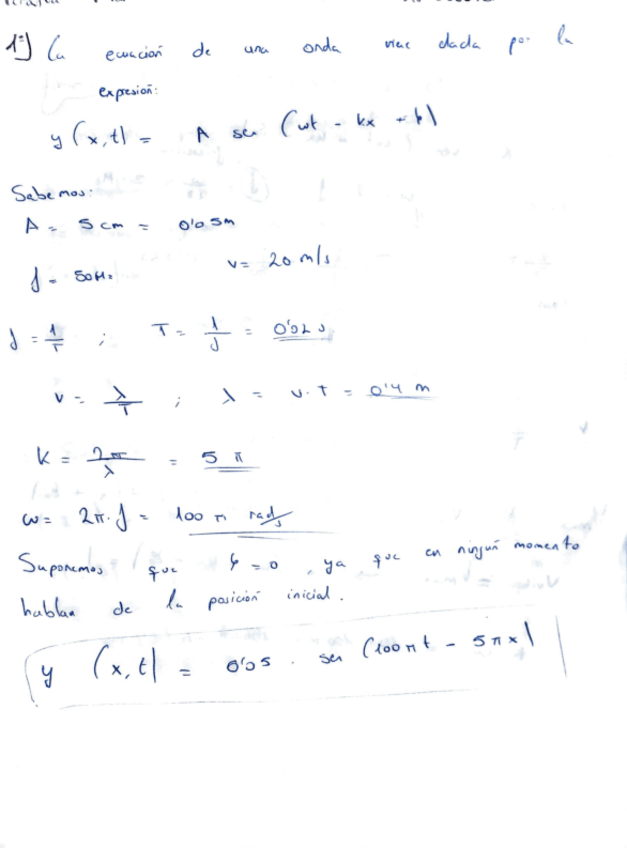 1º) La ecuación de una onda viene dada por la
expresión:
y (x,t) = A sen (wt - kx + φ)
Sabemos:
A = 5 cm = 0'05m
f = 50Hz
v = 20 m/s
f = 1/T ; T = 1/f = 0'02 s
v = λ/T ; λ = v·T = 0'4 m
K = 2π/λ = 5 π
ω = 2π·f = 100 π rad/s
Suponemos que φ = 0, ya que en ningún momento
hablan de la posición inicial.
y (x,t) = 0'05 · sen (100πt - 5πx)